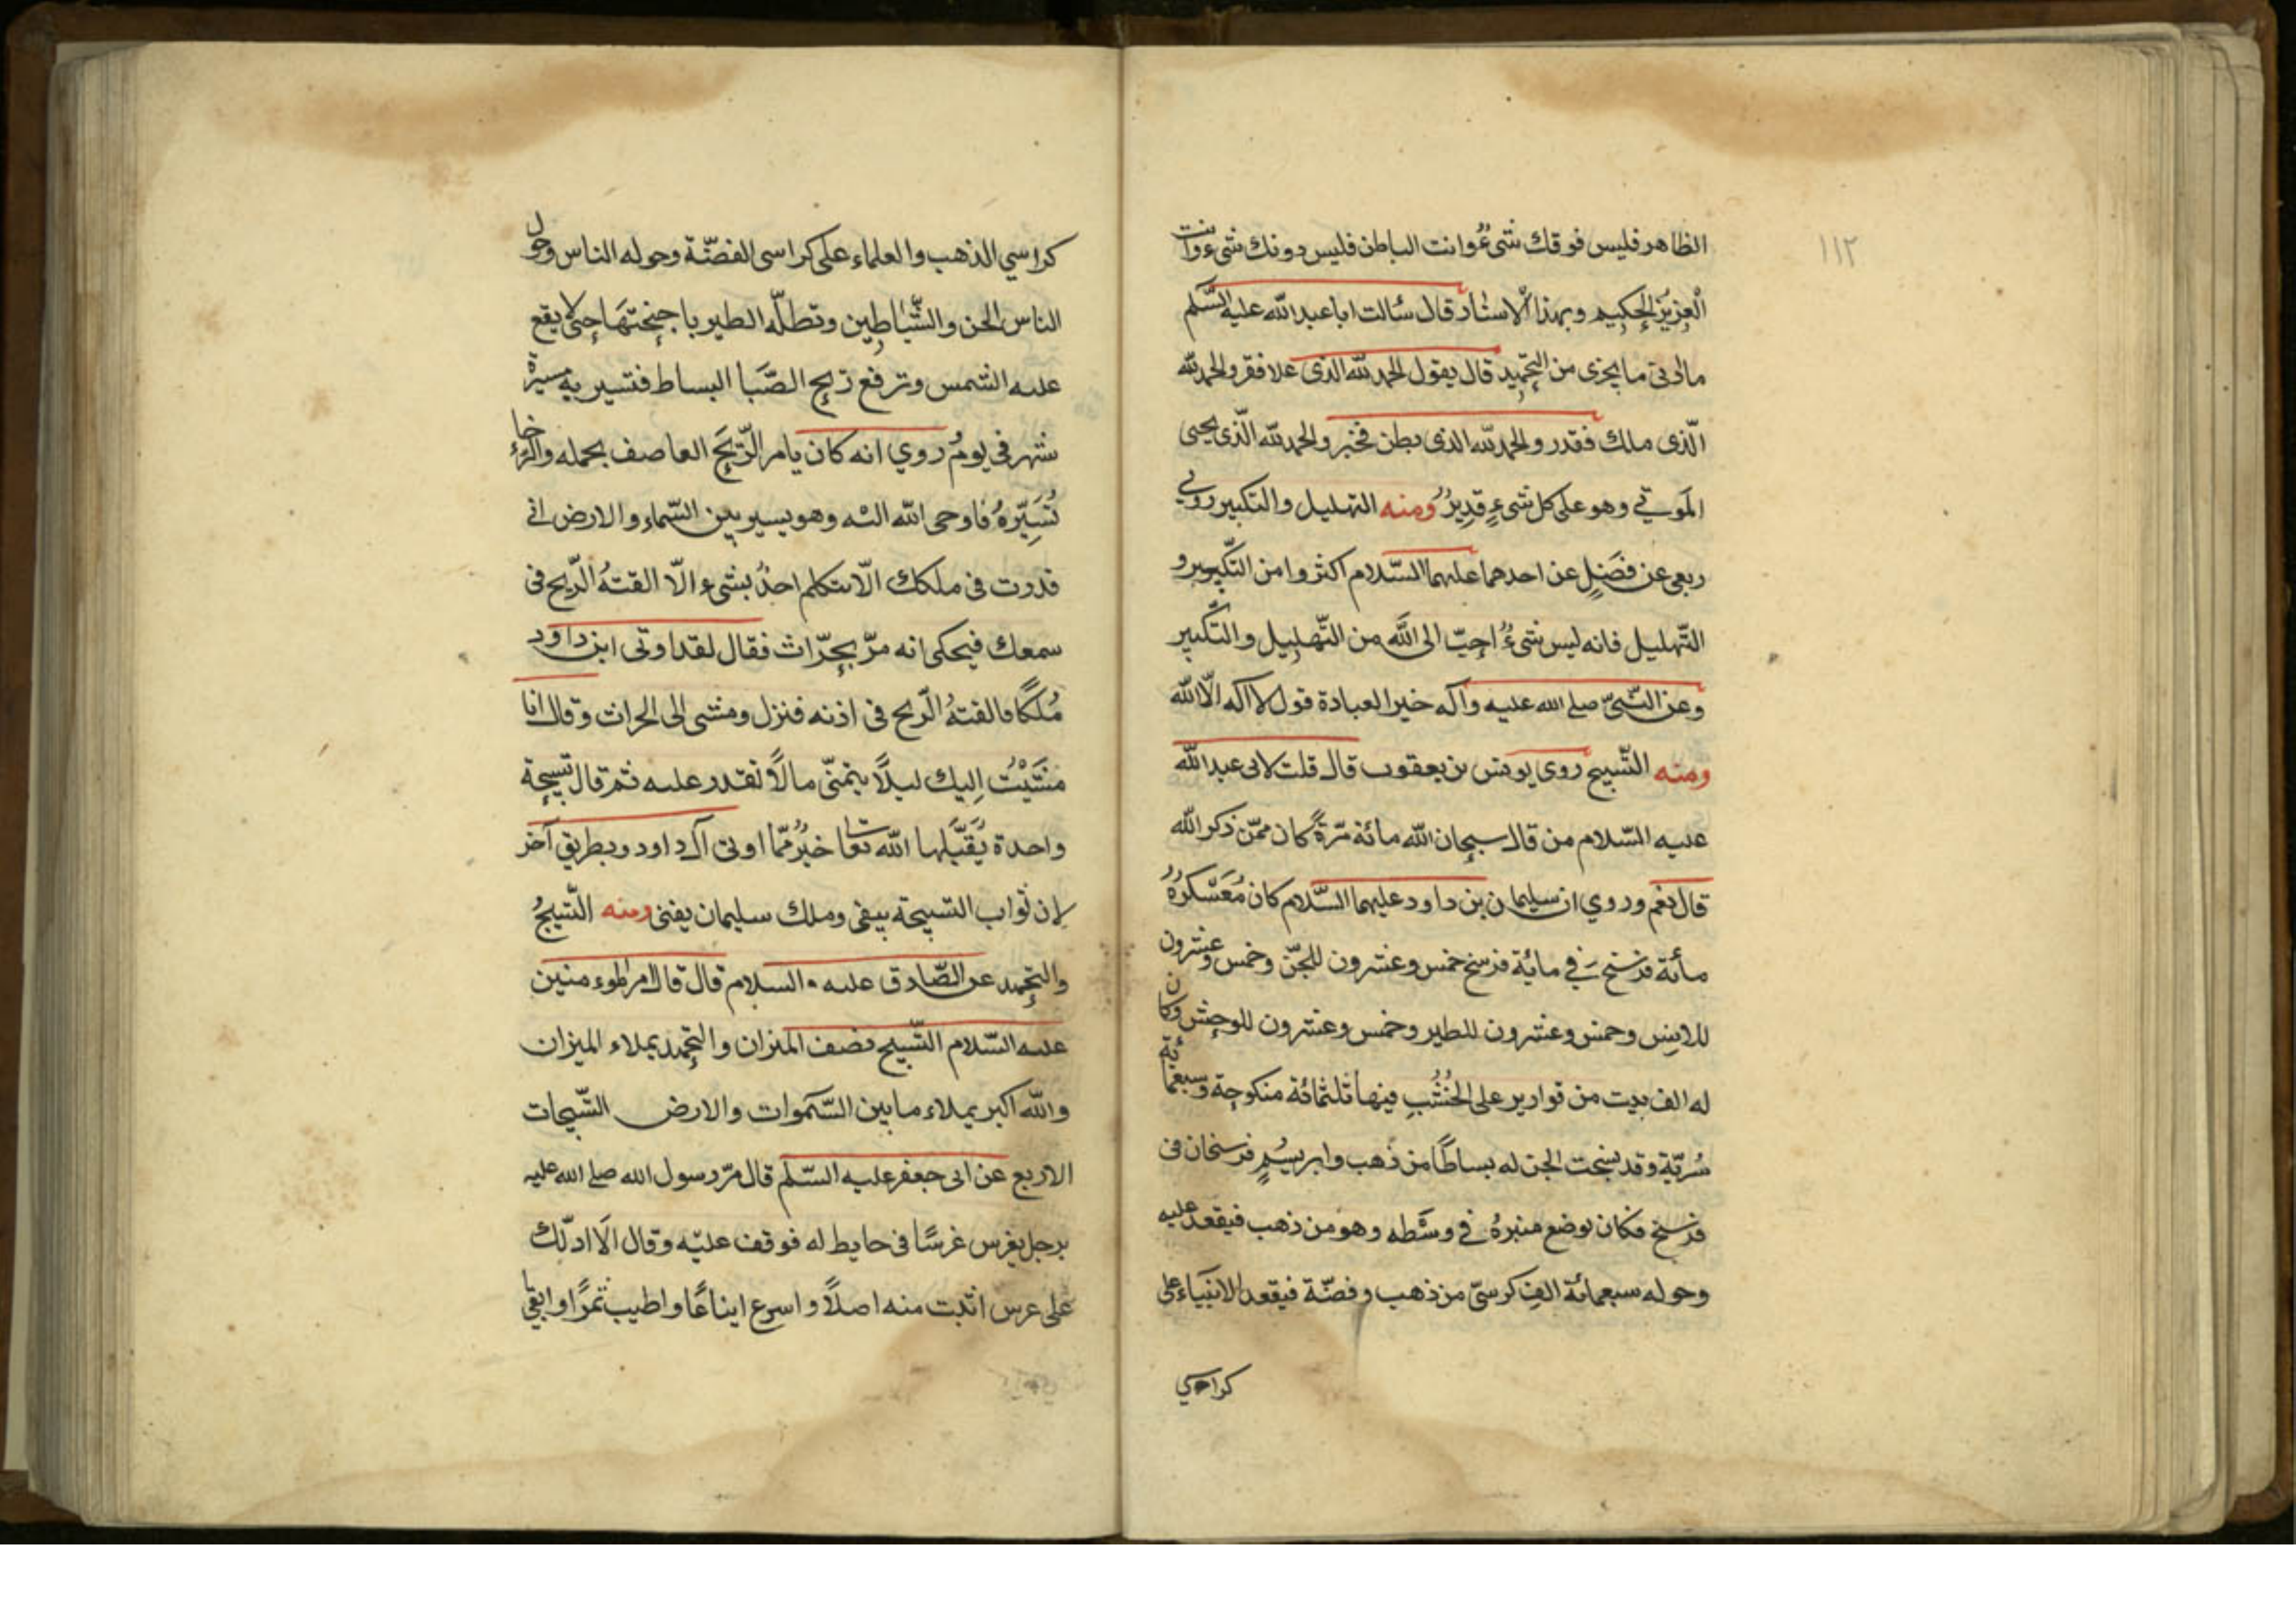 ١١٢
الظاهر فليس فوقك شیءٌ وانت الباطن فليس دونك شیء وانت
الْعزيزُ الحكيم وبهذا الاسناد قال سئالت اباعبدالله عليه السَّلم
مالدنی ما يجزی من التحميد قال يقول الحمد لله الذی علا فقهر والحمد لله
الّذی ملك فقدر والحمد لله الذی بطن فخبر والحمد لله الّذی يحيی
الْمَوتی وهو علی كل شیءٍ قديرٌ ومنه التهليل والتكبير روی
ربعی عن فضيلٍ عن احدهما عليهما السّلام اكثروا من التكبير و
التّهليل فانه ليس شیءٌ احبّ الی الله من التّهليل والتّكبير
وعن النّبیّ صلے الله عليه وآله خير العبادة قول لا اله الّا الله
ومنه التّسبيح روی يونس بن يعقوب قال قلت لابی عبد الله
عليه السّلام من قال سبحان الله مائة مرّةً كان ممّن ذكر الله
قال نعم وروي ان سليمان بن داود عليهما السّلام كان مُعَسْكرُهُ
مأئة فرسخ في مایُة فرسخ خمس وعشرون للجنّ وخمس وعشرون
للانس وخمس وعشرون للطير وخمس وعشرون للوحش وكان
له الف بيت من قوارير علی الخُشُبِ فيها ثلثمائة منكوحة وسبعمائة
سُريّة وقد نسجت الجن له بساطًا من ذهب وابريسمٍ فرسخان فی
فرسخ فكان يوضع منبرهُ فی وسَطه وهو من ذهب فيقعد عليه
وحوله سبعمائة الف كرسیّ من ذهب وفضّة فيقعد الانبياء علی
كراسي
كراسي الذهب والعلماء علی كراسی الفضّة وحوله الناس وحول
الناس الجن والشّياطين وتظلّه الطير باجنحتها حتی لا يقع
عليه الشمس وترفع ريح الصَّبا البساط فتسير به مسيرة
شهر فی يوم روي انه كان يامر الرّيح العاصف بحمله والرّخاء
تُسَيّرهُ فاوحی الله اليه وهو يسير بين السّماء والارض انی
قدزدت فی ملكك الّا يتكلم احدٌ بشیء الّا القتهُ الرّيح فی
سمعك فيحكی انه مرّ بحرّاث فقال لقد اوتی ابن داود
مُلكًا فالقتهُ الرّيح فی اذنه فنزل ومشی الی الحراث وقال انا
مَشَيْتُ اِليك ليلًا يتمنّی مالًا نقدر عليه ثم قال تسبيحة
واحدة يُقَبِّلها الله تعا خيرٌ ممّا اوتی آل داود وبطريق آخر
لان ثواب التسبيحة يبقی وملك سليمان يفنی ومنه التّسبيحُ
والتحميد عن الصّادق عليه السلام قال قال امير الموءمنين
عليه السّلام التّسبيح نصف الميزان والتحميد يملاء الميزان
والله اكبر يملاء مابين السّموات والارض التّسبيحات
الاربع عن ابی جعفر عليه السّلم قال مرّ رسول الله صلے الله عليه
برجل يغرس غرسًا فی حايط له فوقف عليه وقال الَا ادلّك
علی غرس اثبت منه اصلًا واسرع ايناعًا واطيب ثمرًا وابقی